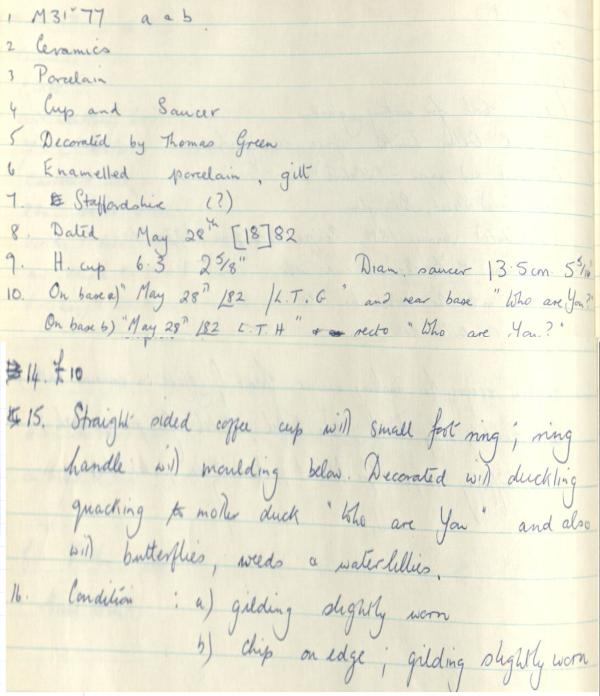 1 M31-'77 a a b.
2 Ceramics
3 Porcelain
4 Cup and Saucer
5 Decorated by Thomas Green
6 Enamelled porcelain, gilt
7. Staffordshire (?)
8. Dated May 28th [18]82
9. H. cup 6.3 2 5/8" Diam. saucer 13.5cm 5 5/16"
10. On base a) "May 28th /82 / L.T.G" and near base "Who are You?"
On base b) "May 28th /82 L.T.H" recto "Who are You?"
14. £10
15. Straight sided coffee cup with small foot ring; ring
handle with moulding below. Decorated with duckling
quacking to mother duck "Who are You" and also
with butterflies, weeds & waterlillies.
16. Condition : a) gilding slightly worn
b) chip on edge; gilding slightly worn